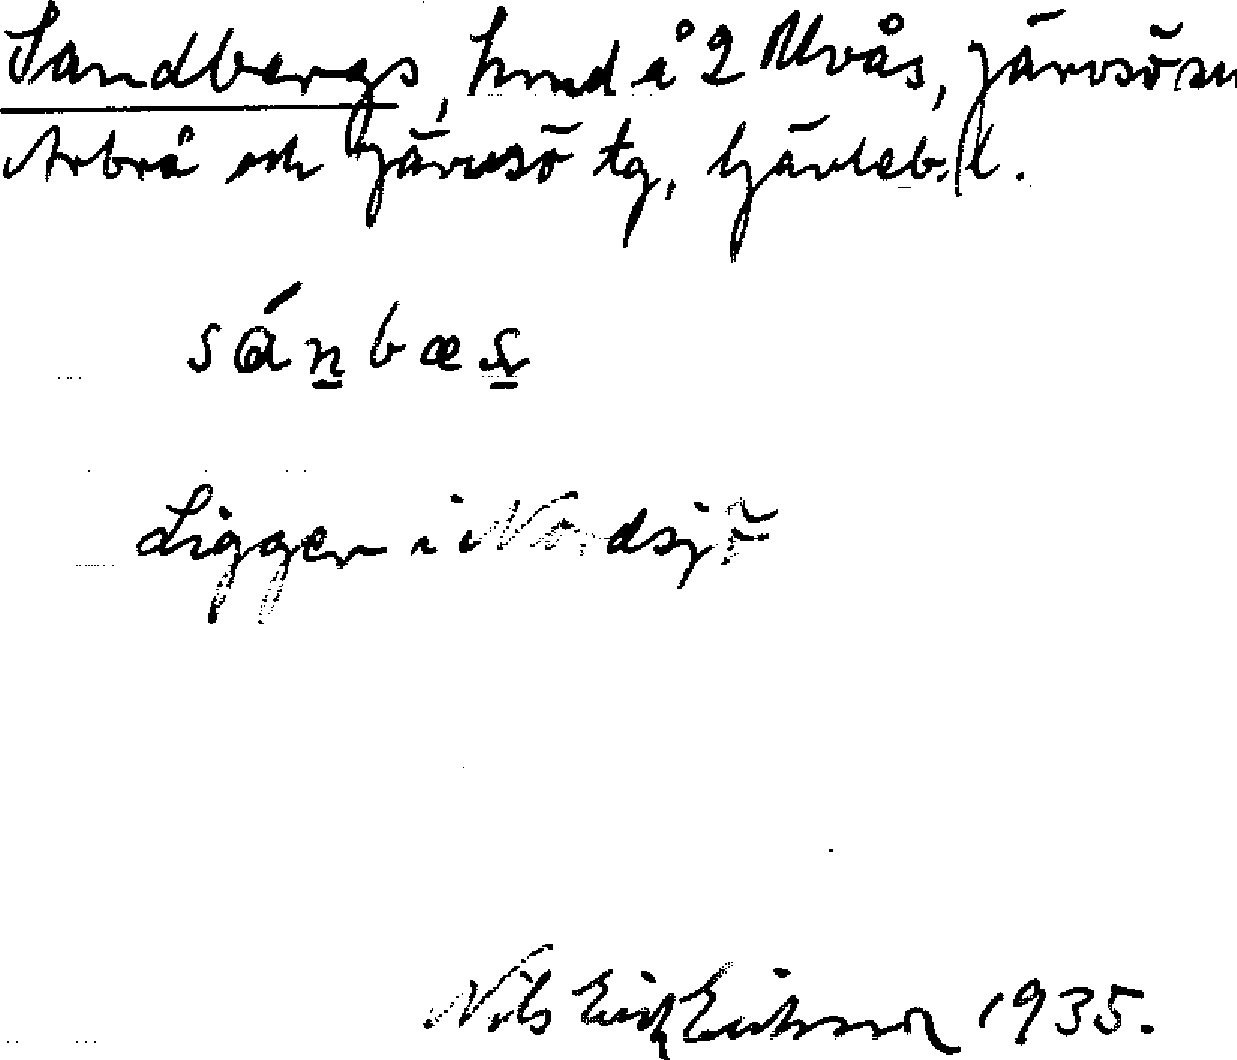 Sandbergs, hmd å 2 Ulvås, Järvsö sn
Arbrå och Järvsö tg, Gävleb. l.
sánbæs
Ligger i Nordsjö
Nils Erik Eriksson 1935.